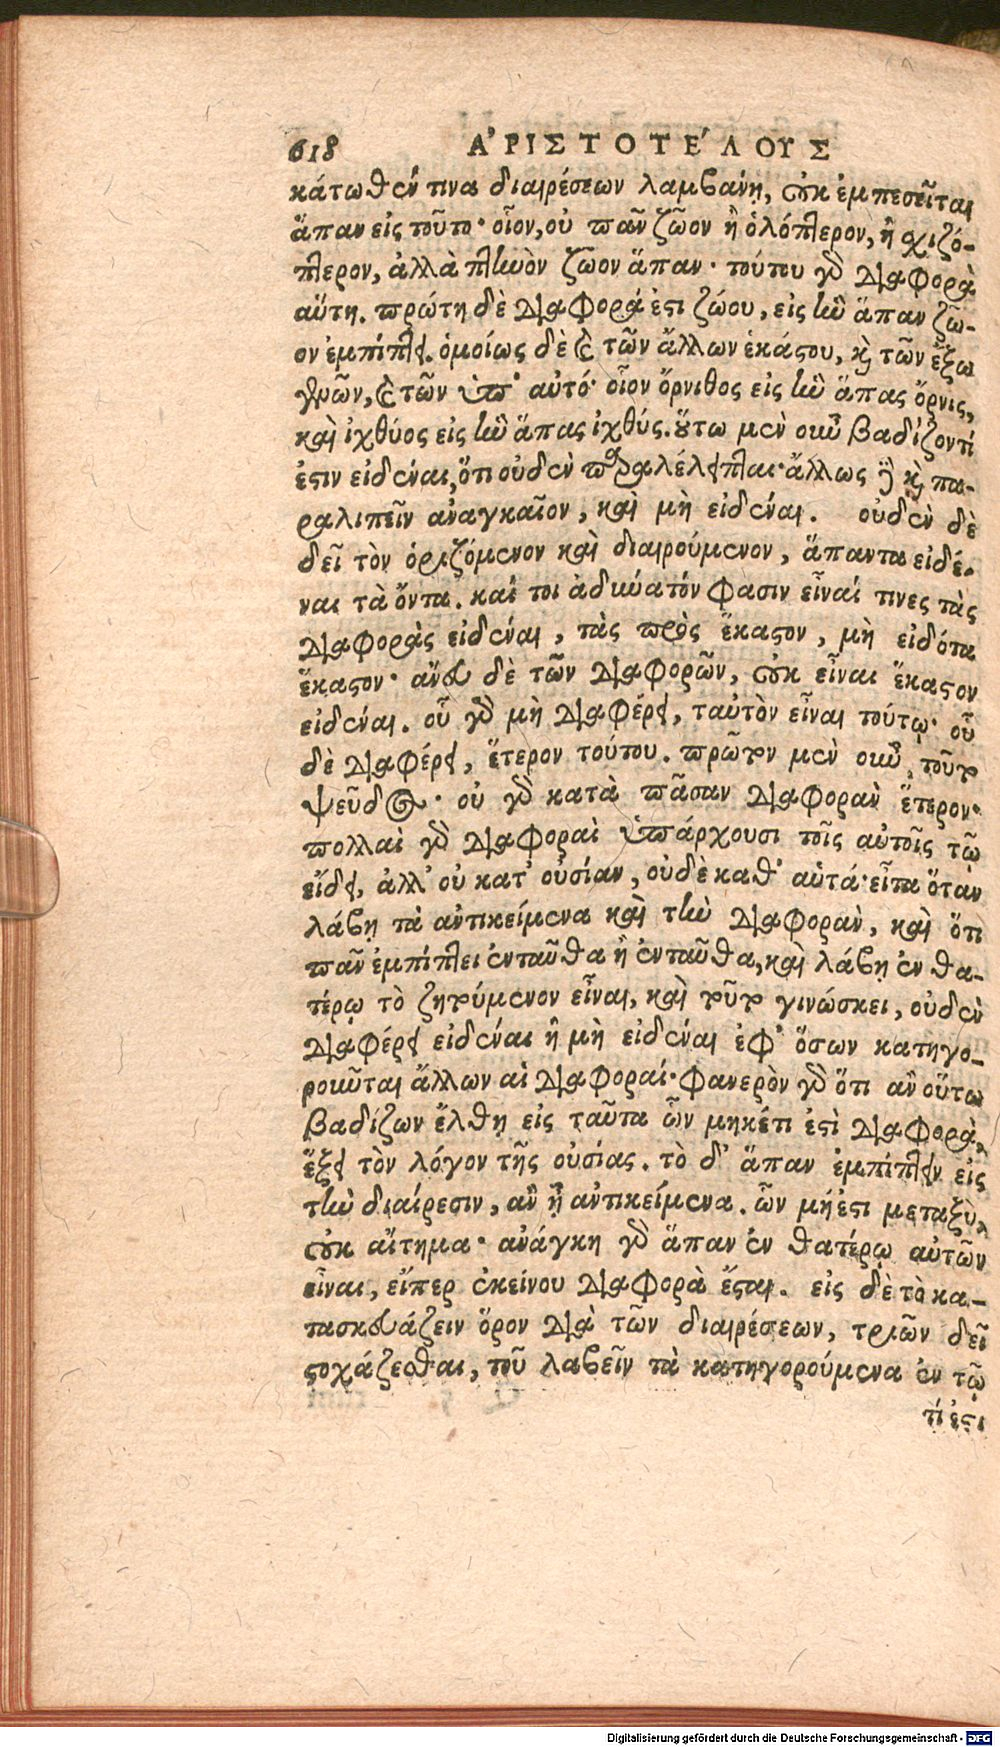 618 ἈΡΙΣΤΟΤΈΛΟΥΣ
κάτωθέν τινα διαιρέσεων λαμβάνῃ, οὐκ ἐμπεσεῖται
ἅπαν εἰς τοῦτο· οἷον, οὐ πᾶν ζῶον ἢ ὁλόπτερον, ἢ σχιζό-
πτερον, ἀλλὰ πτηνὸν ζῶον ἅπαν· τούτου γὰρ διαφορὰ
αὕτη. πρώτη δὲ διαφορά ἐστι ζώου, εἰς ἣν ἅπαν ζῶ-
ον ἐμπίπτει. ὁμοίως δὲ καὶ τῶν ἄλλων ἑκάστου, καὶ τῶν ἔξω
γενῶν, καὶ τῶν ὑπ' αὐτό· οἷον ὄρνιθος εἰς ἣν ἅπας ὄρνις,
καὶ ἰχθύος εἰς ἣν ἅπας ἰχθύς. οὕτω μὲν οὖν βαδίζοντί
ἐστιν εἰδέναι, ὅτι οὐδὲν παραλέλειπται· ἄλλως δὲ καὶ πα-
ραλιπεῖν ἀναγκαῖον, καὶ μὴ εἰδέναι. οὐδὲν δὲ
δεῖ τὸν ὁριζόμενον καὶ διαιρούμενον, ἅπαντα εἰδέ-
ναι τὰ ὄντα. καί τοι ἀδύνατόν φασιν εἶναί τινες τὰς
διαφορὰς εἰδέναι, τὰς πρὸς ἕκαστον, μὴ εἰδότα
ἕκαστον· ἄνευ δὲ τῶν διαφορῶν, οὐκ εἶναι ἕκαστον
εἰδέναι. οὗ γὰρ μὴ διαφέρει, ταὐτὸν εἶναι τούτῳ· οὗ
δὲ διαφέρει, ἕτερον τούτου. πρῶτον μὲν οὖν τοῦτο
ψεῦδος· οὐ γὰρ κατὰ πᾶσαν διαφορὰν ἕτερον·
πολλαὶ γὰρ διαφοραὶ ὑπάρχουσι τοῖς αὐτοῖς τῷ
εἴδει, ἀλλ' οὐ κατ' οὐσίαν, οὐδὲ καθ' αὑτά· εἶτα ὅταν
λάβῃ τὰ ἀντικείμενα καὶ τὴν διαφορὰν, καὶ ὅτι
πᾶν ἐμπίπτει ἐνταῦθα ἢ ἐνταῦθα, καὶ λάβῃ ἐν θα-
τέρῳ τὸ ζητούμενον εἶναι, καὶ τοῦτο γινώσκει, οὐδὲν
διαφέρει εἰδέναι ἢ μὴ εἰδέναι ἐφ' ὅσων κατηγο-
ροῦνται ἄλλων αἱ διαφοραί· φανερὸν γὰρ ὅτι ἂν οὕτω
βαδίζων ἔλθῃ εἰς ταῦτα ὧν μηκέτι ἐστὶ διαφορὰ,
ἕξει τὸν λόγον τῆς οὐσίας. τὸ δ' ἅπαν ἐμπίπτειν εἰς
τὴν διαίρεσιν, ἂν ᾖ ἀντικείμενα. ὧν μή ἐστι μεταξὺ,
οὐκ αἴτημα· ἀνάγκη γὰρ ἅπαν ἐν θατέρῳ αὐτῶν
εἶναι, εἴπερ ἐκείνου διαφορὰ ἔσται. εἰς δὲ τὸ κα-
τασκευάζειν ὅρον διὰ τῶν διαιρέσεων, τριῶν δεῖ
στοχάζεσθαι, τοῦ λαβεῖν τὰ κατηγορούμενα ἐν τῷ
τί ἐστι
Digitalisierung gefördert durch die Deutsche Forschungsgemeinschaft - DFG